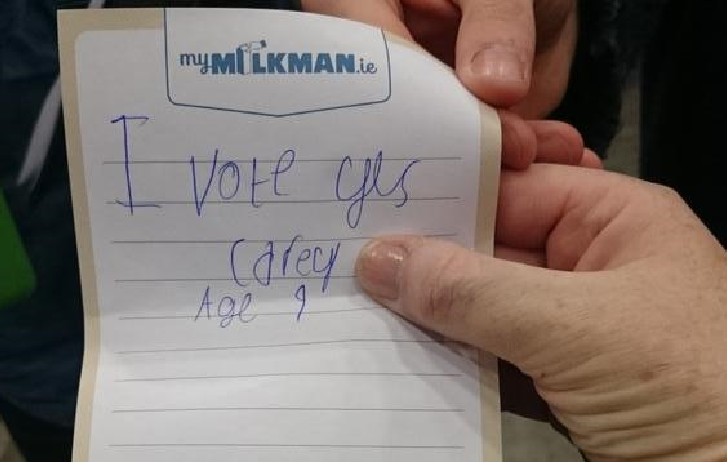 myMILKMAN.ie
I vote yes
Carey
Age 9